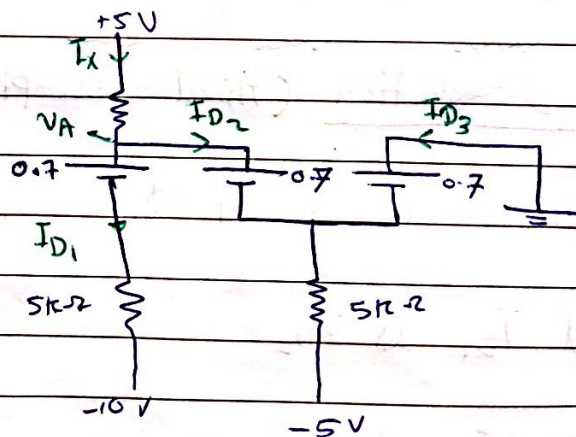 +5V
Ix
VA
ID2
ID3
0.7
0.7
0.7
ID1
5KΩ
5KΩ
-10 V
-5V